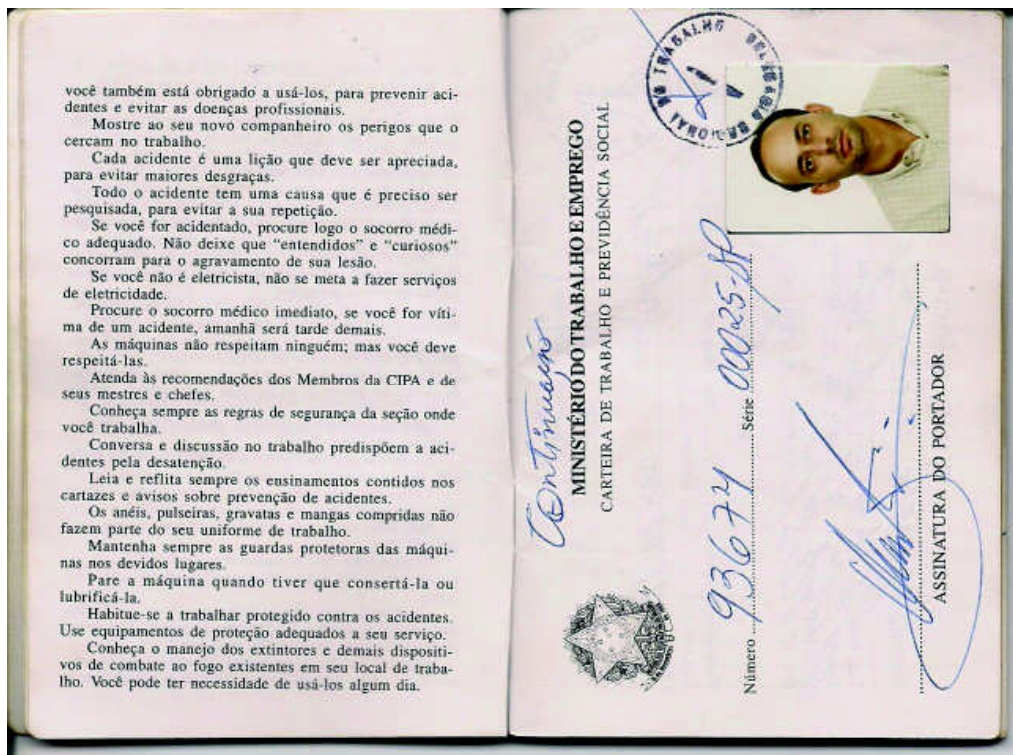 você também está obrigado a usá-los, para prevenir aci-
dentes e evitar as doenças profissionais.
Mostre ao seu novo companheiro os perigos que o
cercam no trabalho.
Cada acidente é uma lição que deve ser apreciada,
para evitar maiores desgraças.
Todo o acidente tem uma causa que é preciso ser
pesquisada, para evitar a sua repetição.
Se você for acidentado, procure logo o socorro médi-
co adequado. Não deixe que "entendidos" e "curiosos"
concorram para o agravamento de sua lesão.
Se você não é eletricista, não se meta a fazer serviços
de eletricidade.
Procure o socorro médico imediato, se você for víti-
ma de um acidente, amanhã será tarde demais.
As máquinas não respeitam ninguém; mas você deve
respeitá-las.
Atenda às recomendações dos Membros da CIPA e de
seus mestres e chefes.
Conheça sempre as regras de segurança da seção onde
você trabalha.
Conversa e discussão no trabalho predispõem a aci-
dentes pela desatenção.
Leia e reflita sempre os ensinamentos contidos nos
cartazes e avisos sobre prevenção de acidentes.
Os anéis, pulseiras, gravatas e mangas compridas não
fazem parte do seu uniforme de trabalho.
Mantenha sempre as guardas protetoras das máqui-
nas nos devidos lugares.
Pare a máquina quando tiver que consertá-la ou
lubrificá-la.
Habitue-se a trabalhar protegido contra os acidentes.
Use equipamentos de proteção adequados a seu serviço.
Conheça o manejo dos extintores e demais dispositi-
vos de combate ao fogo existentes em seu local de traba-
lho. Você pode ter necessidade de usá-los algum dia.
Continuação
MINISTÉRIO DO TRABALHO E EMPREGO
CARTEIRA DE TRABALHO E PREVIDÊNCIA SOCIAL
DELEGACIA REGIONAL DO TRABALHO
Número 93674 Série 00025-SP
ASSINATURA DO PORTADOR